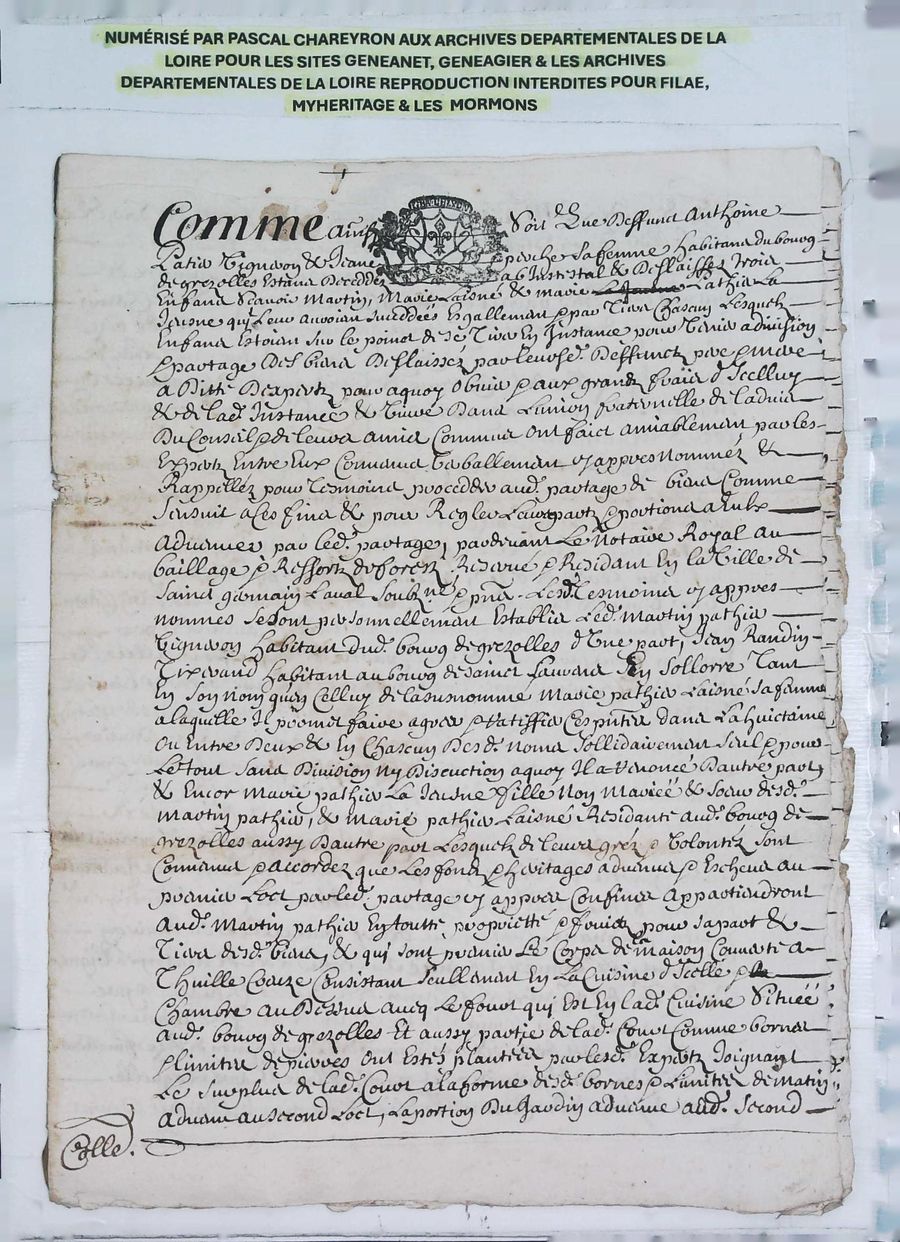 NUMÉRISÉ PAR PASCAL CHAREYRON AUX ARCHIVES DEPARTEMENTALES DE LA
LOIRE POUR LES SITES GENEANET, GENEAGIER & LES ARCHIVES
DEPARTEMENTALES DE LA LOIRE REPRODUCTION INTERDITES POUR FILAE,
MYHERITAGE & LES MORMONS
Comme ainsy Soit que deffunct Anthoine
Patis Vigneron & Jeane sa femme habitans du bourg
de grezolles estans decedés ab intestat & deslaissez trois
Enfans scavoir Martin, Marie Laisné & marie Pathis La
Jeusne qui leur auroient succeddés Esgallement par Tiers Chascun Lesquelz
Enfans Estoient sur le poinct de se Tirer En Instance pour Venir a division
& partage des biens deslaissez par leursd. deffunctz pere & mere
a Ditte Dexpertz pour a quoy obvier & aux grandz fraiz d'Icelluy
& de lad. Instance & Vivre dans Lunion fraternelle de ladvis
du Conseil & de leurs amis Communs ont faict amiablement par les
Expertz Entre Eux Convenus Verballement cy appres nommés &
Rappellez pour Tesmoins proceder aud. partage de biens Comme
sensuit a ces fins & pour Regler Leurs partz & portions a Eulx
advenues par led. partage, pardevant Le Notaire Royal au
bailliage & Ressort de forez Reservé & Residant En la Ville de
Sainct germain Laval soubzné & pns. Lesd. Tesmoins cy appres
nommes se sont personnellement Establis Led. Martin pathis
Vigneron habitant dud. bourg de grezolles d'Une part, Jean Randin
Tixerand habitant au bourg de sainct Laurens En Sollorre Tant
En son nom que Celluy de la susnommée Marie pathis Laisné sa femme
a laquelle Il promet faire agreer & Ratiffier Ces pntes dans La huictaine
ou Entre Deux & En Chascun desd. noms sollidairement seul & pour
Le tout sans division ny discuction a quoy Il a renoncé dautre part,
& Encor Marie pathis La Jeusne fille Non Mariée & soeur desd.
Martin pathis, & Marie pathis Laisné Residante aud. bourg de
grezolles aussy dautre part Lesquelz de leurs gréz & Volontéz sont
Convenus & accordez que Les fondz & heritages advenus & Escheus au
premier Loct par led. partage cy appres Confinés Appartiendront
Aud. Martin pathis En toutte propriette & fonds pour sa part &
Tiers desd. biens, & qui sont premier Le Corps de maison Couverte a
Thuille Creuze Consistant seullement En La Cuisine d'Icelle &
Chambre au dessus avecq Le fourt qui Est En lad. Cuisine Située
aud. bourg de grezolles Et aussy partie de lad. Court Comme bornes
& limites de pierres ont Estés plantées par lesd. Expertz Joignant
Le surplus de lad. Court a la forme desd. bornes & Limites de matin
advenu au second Loct, La portion du Jardin advenue aud. second
Colle.